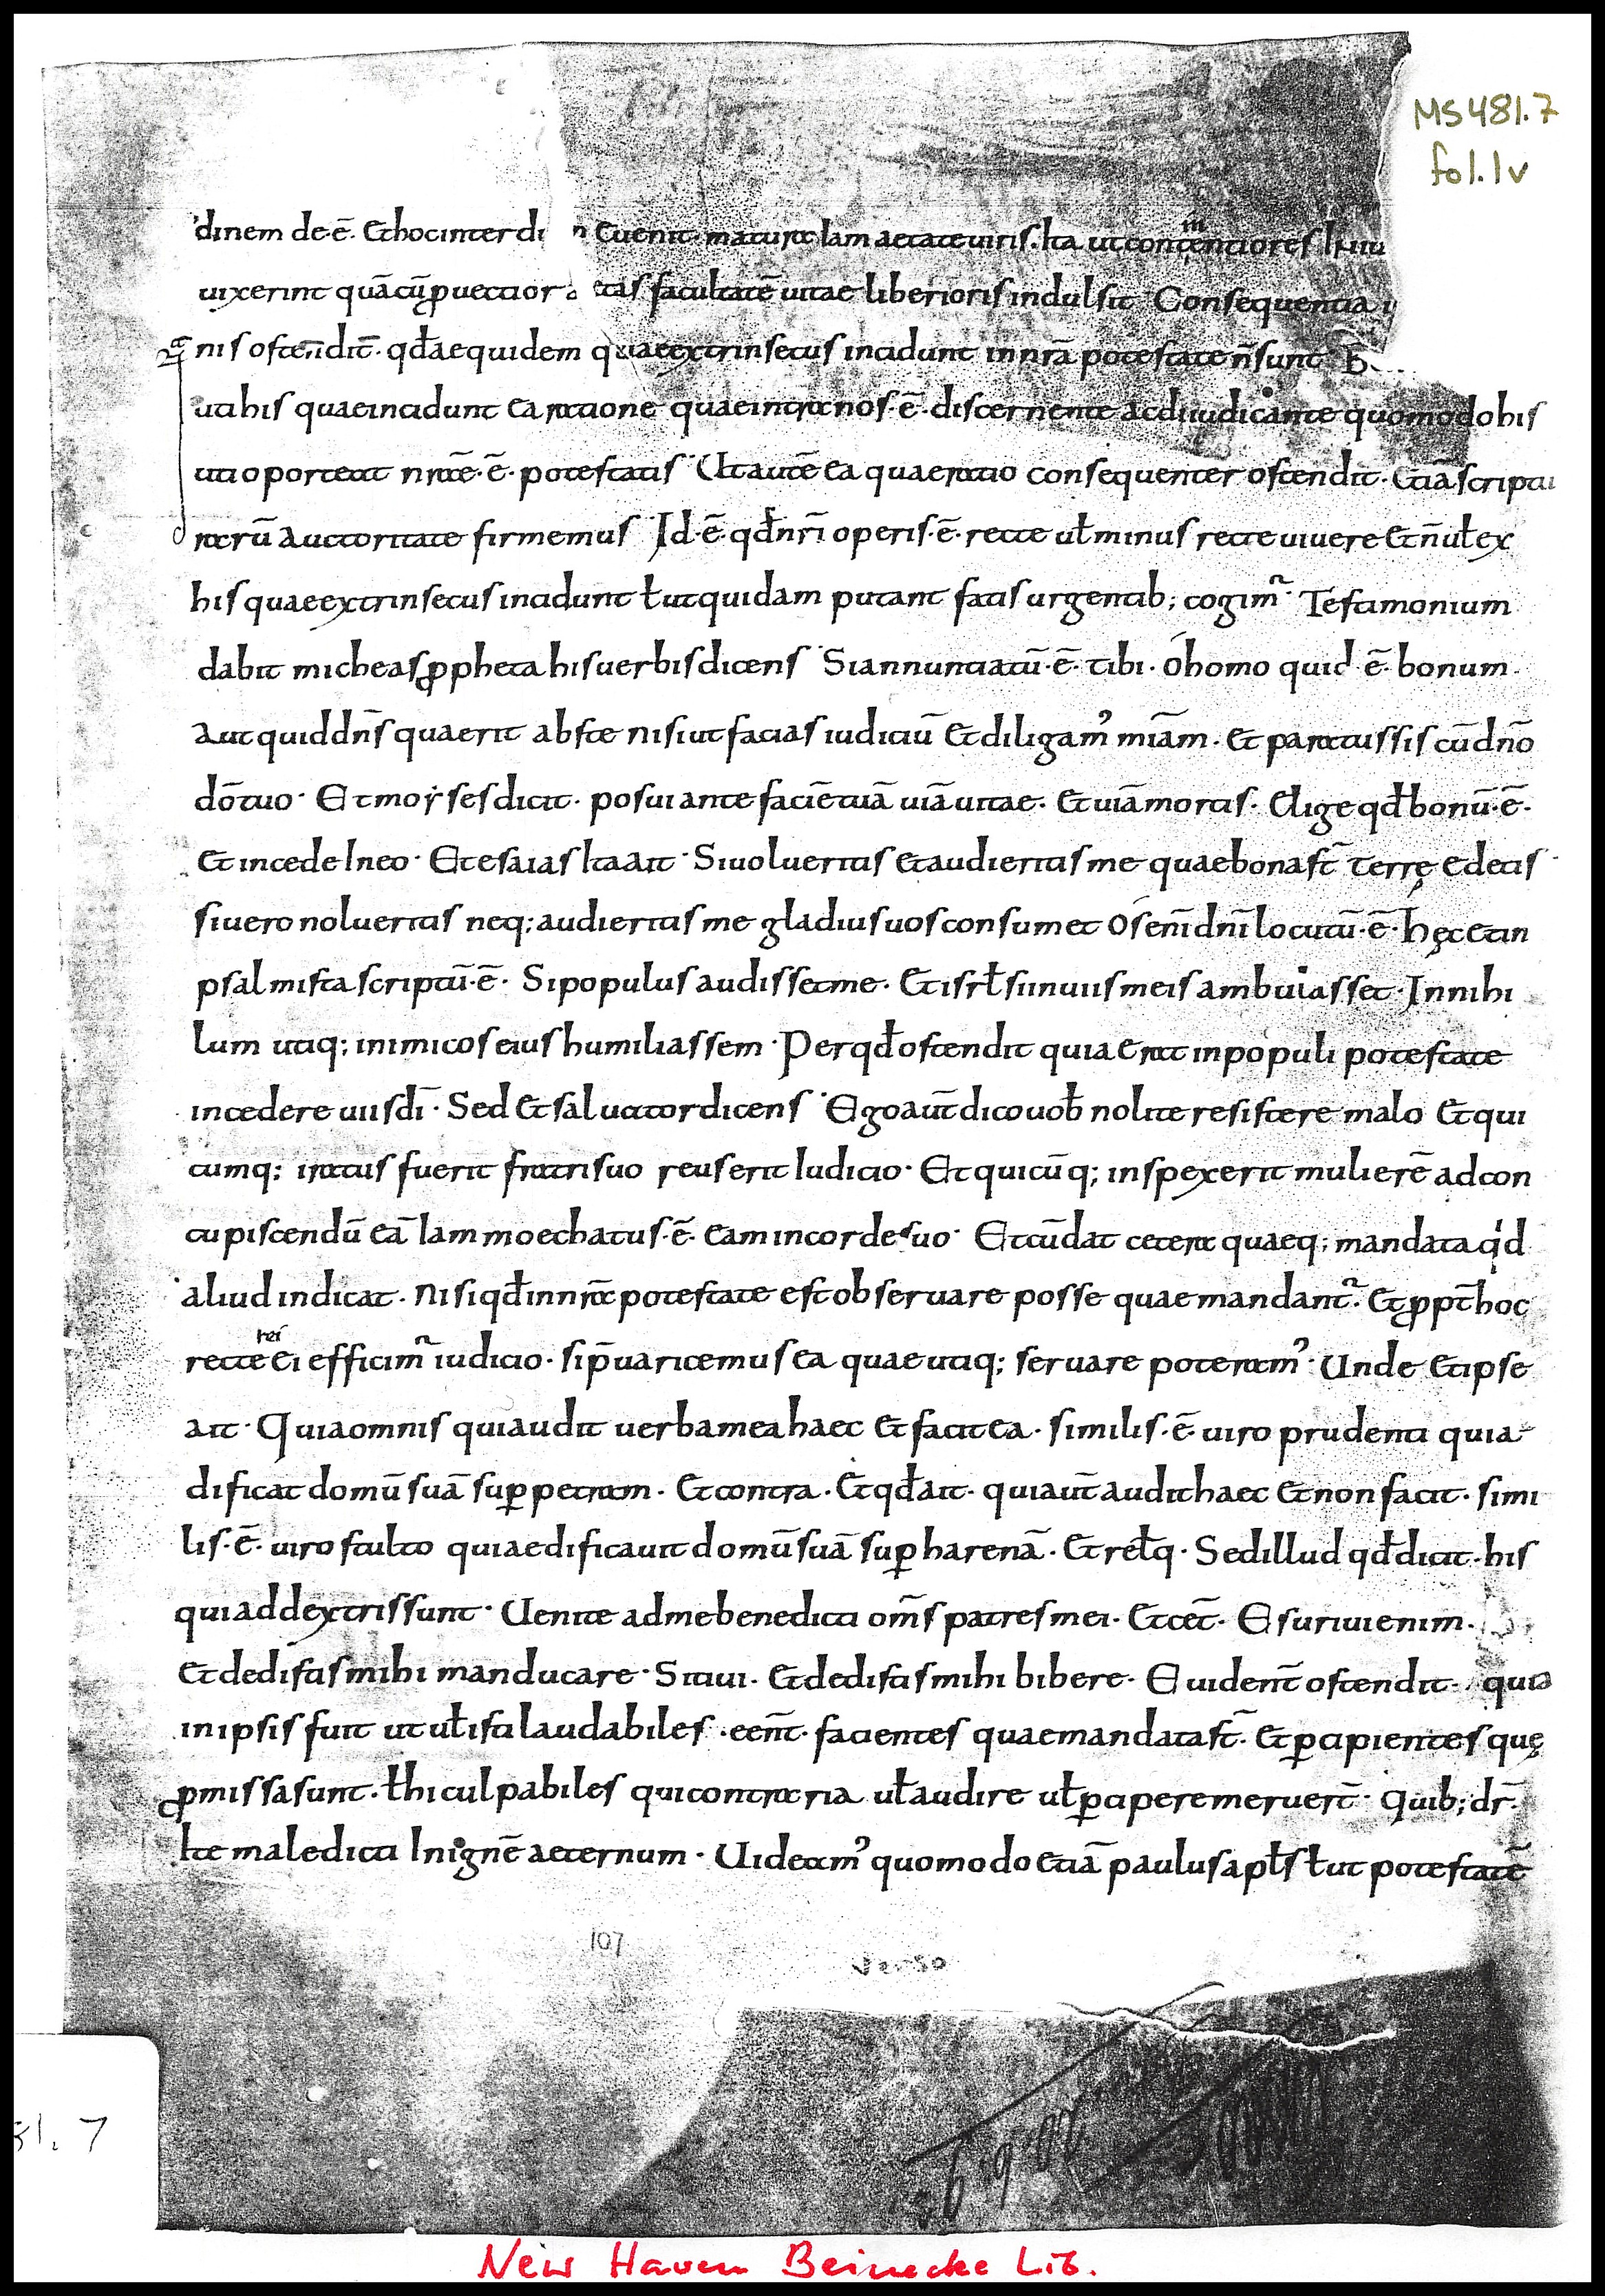 MS481.7
fol.1v
dinem de·ē· Et hoc interdi n euenit· maturae Iam aetate uiris· Ita ut contentiores
uixerint quācūq; puectior aetas facultatē uitae liberioris indulsit· Consequentia
nis ostendit̄· qđ ea equidem quae extrinsecus incidunt in nrā potestate n̄ sunt· B
uti his quae incidunt ea ratione quae intra nos·ē· discernente ac diiudicante quomodo his
uti oporteat nrae·ē· potestatis· Ut autē ea quae ratio consequenter ostendit· Etiā scriptu
rarū auctoritate firmemus Id·ē· qđ nr̄i operis·ē· recte uł minus recte uiuere et n̄ uł ex
his quae extrinsecus incidunt ł ut quidam putant fatis urgentib; cogimr̃· Testimonium
dabit micheas ꝓpheta his uerbis dicens· Si annuntiatū·ē· tibi· ó homo quid·ē· bonum
aut quid dn̄s quaerit abs te nisi ut facias iudiciū et diligam᾿ mīam· et paratus sis cū dn̄o
dō tuo· Et moẏses dicit· posui ante faciē tuā uiā uitae· et uiā mortis· Elige qđ bonū·ē·
et incede In eo· Et esaias Ita ait· Si uolueritis et audieritis me quae bona st̄ terrę edetis·
si uero nolueritis neq; audieritis me gladius uos consumet Ós eni̅ dni̅ locutū·ē· hęc et in
psalmista scriptū·ē· Si populus audisset me· Et isrł si in uiis meis ambulasset· In nihi
lum utiq; inimicos eius humiliassem· Per qđ ostendit quia erat in populi potestate
incedere uiis dī· Sed et saluator dicens· Ego aut̄ dico uoƀ nolite resistere malo Et qui
cumq; iratus fuerit fratri suo reus erit Iudicio· Et quicūq; inspexerit mulierē ad con
cupiscendū eā Iam moechatus·ē· eam in corde suo· Et cū dat cetera quaeq; mandata qid
aliud indicat· nisi qđ in nrā potestate est obseruare posse quae mandant᷑· et ꝓpt̄ hoc
rei
recte ei efficimr̃ iudicio· si p̄uaricemus ea quae utiq; seruare poteram᾿· Unde et ipse
ait· Quia omnis qui audit uerba mea haec et facit ea· similis·ē· uiro prudenti qui a
dificat domū suā suꝑ petram· Et contra· Et qđ ait· qui aut̄ audit haec et non facit· simi
lis·ē· uiro stulto qui aedificauit domū suā suꝑ harenā· et relq̄· Sed illud qđ dicit· his
qui ad dextris sunt· Uenite ad me benedicti om̄s patres mei· Et cet̄· Esuriui enim·
et dedistis mihi manducare· Sitiui· et dedistis mihi bibere· Euident̄ ostendit· quia
in ipsis fuit ut uł isti laudabiles·eent̄· facientes quae mandata st̄· Et ꝑcipientes quę
ꝓmissa sunt· ł hi culpabiles qui contraria uł audire uł ꝑcipere meruert̄· Quib; dr̄·
Ite maledicti In ignē aeternum· Uideam᾿ quomodo etiā paulus apłs ł ut potestatē
107
verso
81.7
New Haven Beinecke Lib.